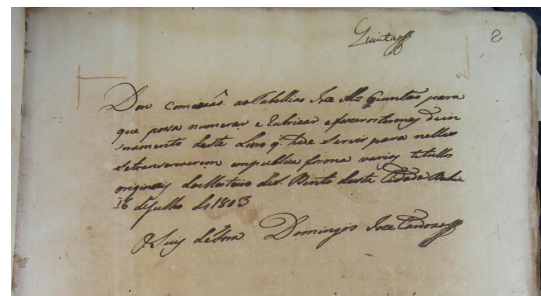 Quintaẽs 8
Dou comessaõ ao Tabelliaõ Joze Alz Quintaõ para
que possa numerar e Rubricar e fazer os termos de in
serramento deste Livro q. hade servir para nelle
se transcreverem em publica forma varios titullos
originaes do Mosteiro de S. Bento desta Cidade Bahia
16 de Julho de 1803
O Juiz de Fora Domingos Joze Cardozo